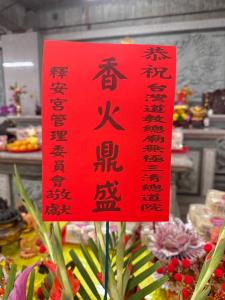 恭祝
台灣道教總廟無極三清總道院
香火鼎盛
釋安宮管理委員會敬獻